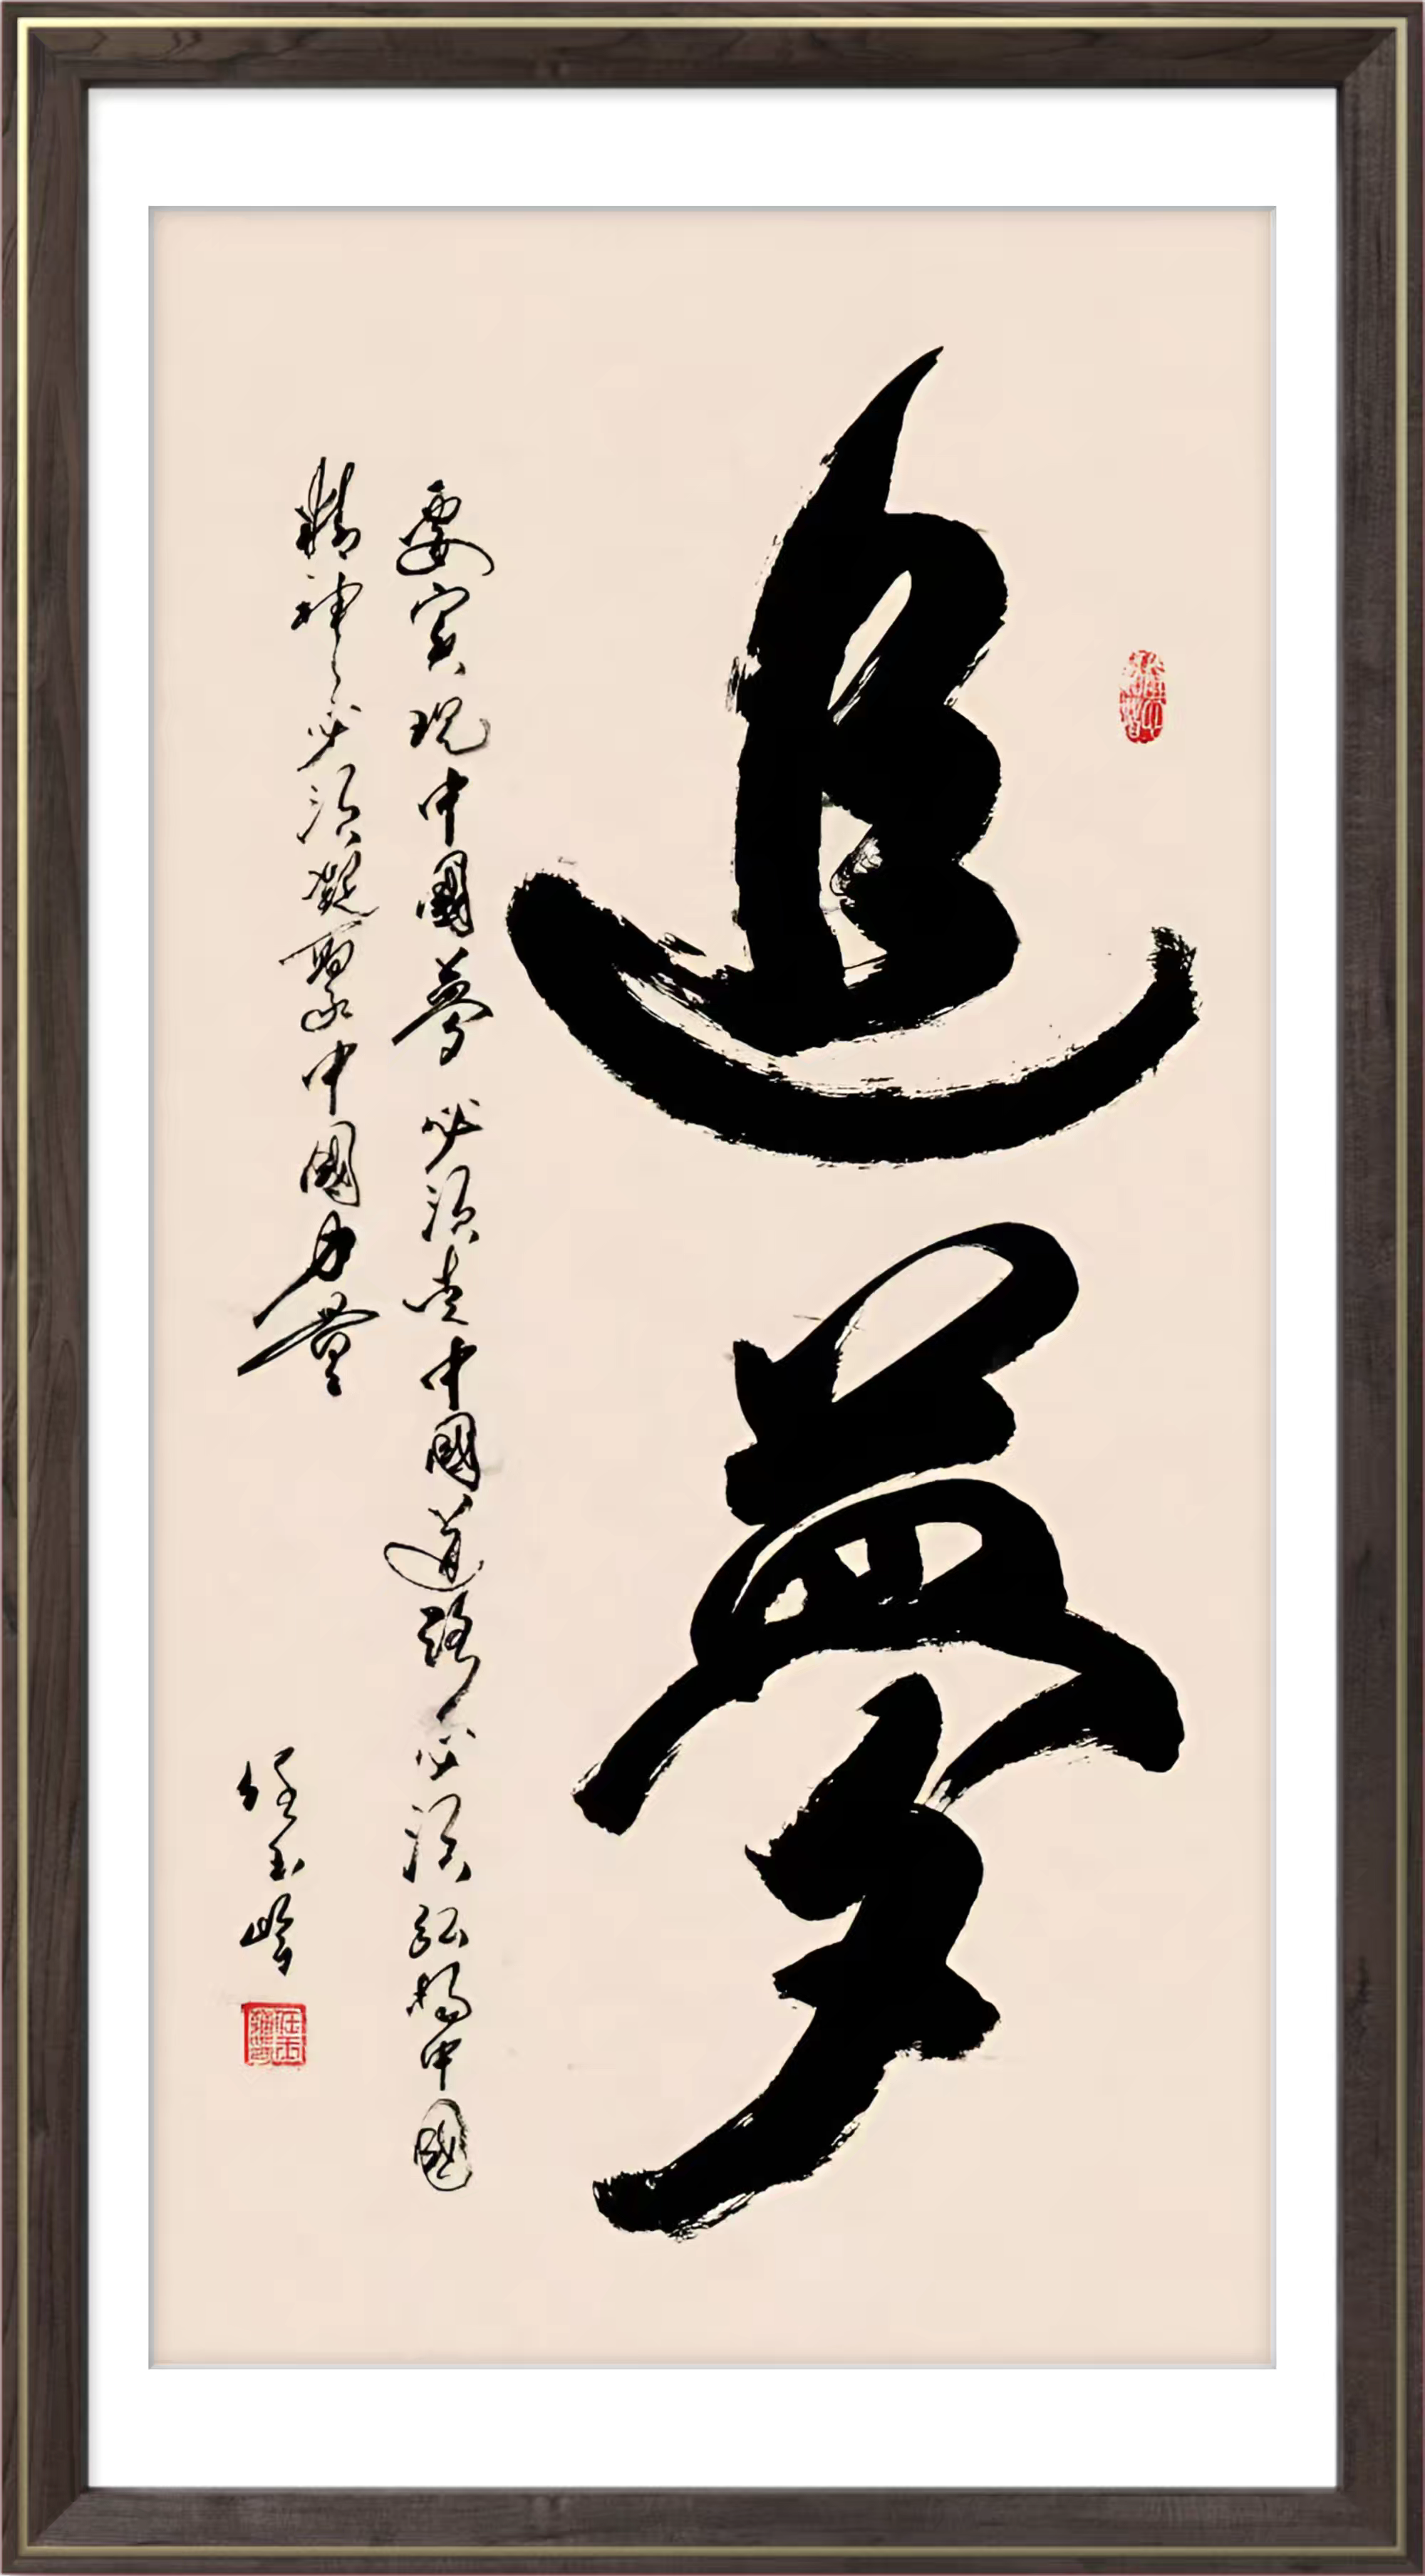 追夢
要实现中國夢必须走中國道路必须弘揚中國
精神必须凝聚中國力量
任玉岭